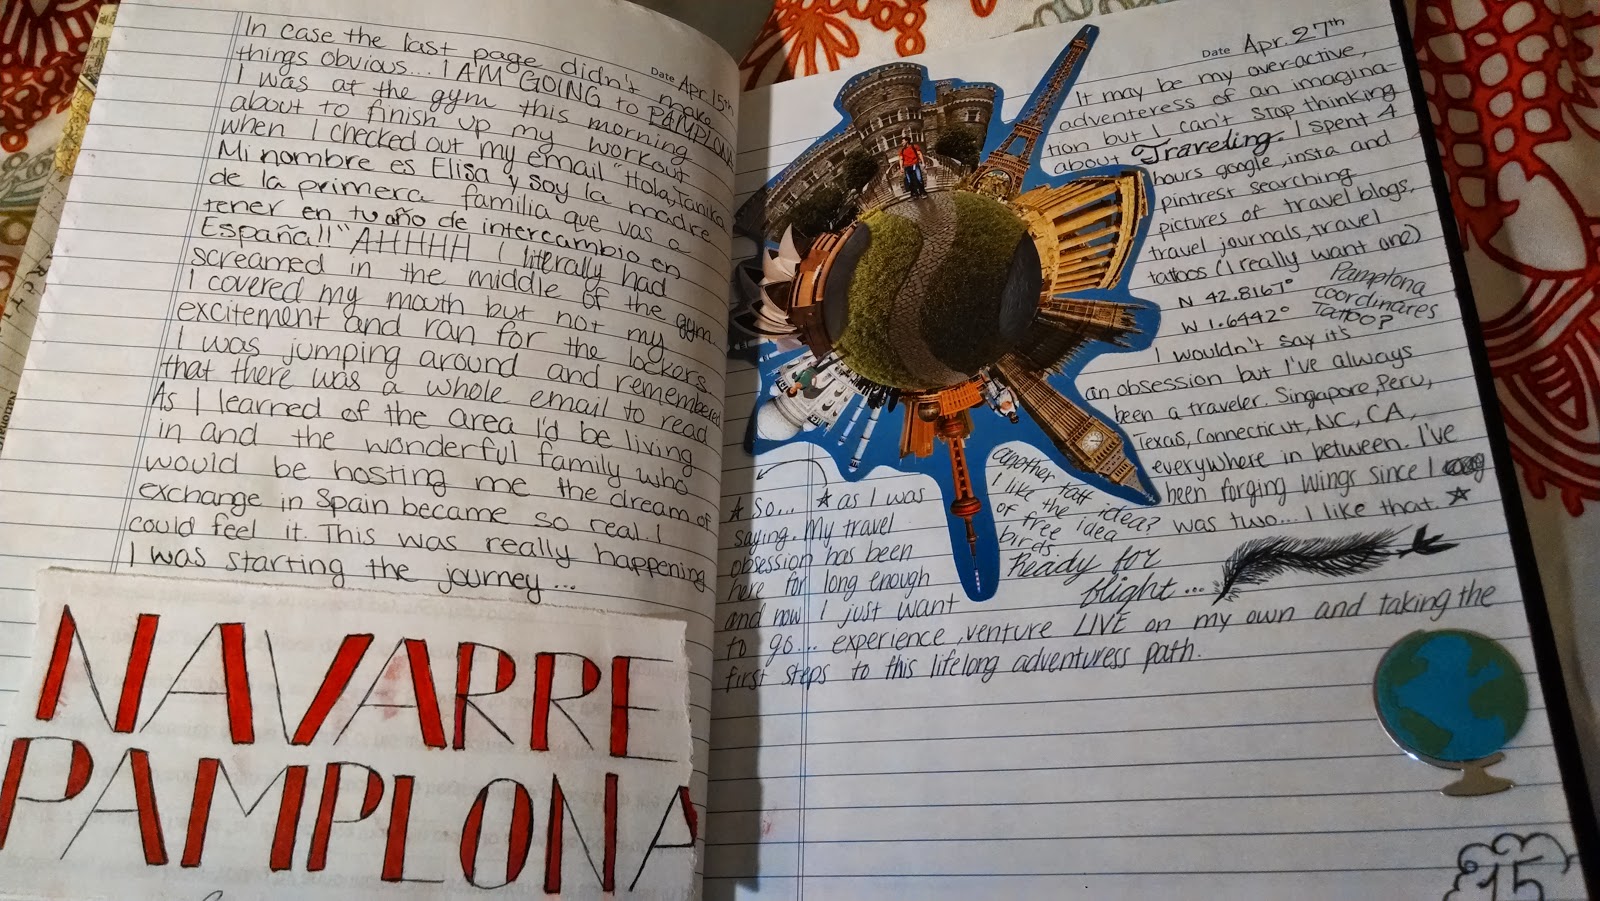 Date Apr. 15th
In case the last page didn't make
things obvious... I AM GOING to PAMPLONA
I was at the gym this morning
about to finish up my workout
when I checked out my email "Hola, Tanika
Mi nombre es Elisa y soy la madre
de la primera familia que vas a
tener en tu año de intercambio en
España!!" AHHHH I literally had
screamed in the middle of the gym.
I covered my mouth but not my
excitement and ran for the lockers.
I was jumping around and remembered
that there was a whole email to read
As I learned of the area I'd be living
in and the wonderful family who
would be hosting me the dream of
exchange in Spain became so real. I
could feel it. This was really happening
I was starting the journey...
NAVARRE
PAMPLONA
Date Apr. 27th
It may be my over-active,
adventeress of an imagina-
tion but I can't stop thinking
about Traveling. I spent 4
hours google, insta and
pintrest searching
pictures of travel blogs,
travel journals, travel
tattoos (I really want one)
N 42.8167°
W 1.6442°
Pamplona
coordinates
Tattoo?
I wouldn't say it's
an obsession but I've always
been a traveler. Singapore, Peru,
Texas, Connecticut, NC, CA,
everywhere in between. I've
been forging wings since I
was two... I like that. ☆
another tatt idea?
I like the idea
of free
birds
Ready for
flight...
☆ So... ☆ as I was
saying. My travel
obsession has been
here for long enough
and now I just want
to go... experience, venture LIVE on my own and taking the
first steps to this lifelong adventuress path.
15